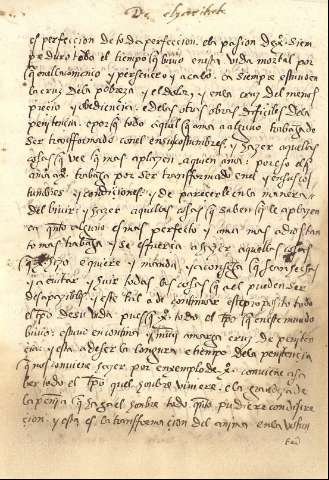 De charitat
es perfeccion de toda perfeccion. ela pasion de xo. siem
pre duro todo el tiempo que bivio en esta vida mortal por
que començo y persevero y acabo. ca siempre estuvo en
la cruz dela pobreza y el dolor, y en la cruz del menos
precio y obediencia. e delas otras obras dificiles dela
penitencia. e porque todo aquel que ama a alguno trabaja de
ser transformado con el en sus costumbres, y hazer aquellas
cosas que ve que mas aplazen a quien ama: por eso el que
ama a xo. trabaja por ser transformado en el y en sus cos
tumbres, y condiciones, y de parecerle en la manera
del bivir: y hazer aquellas cosas que sabe que le aplazen
ca quanto alguno es mas perfecto y ama mas a dios tan
to mas trabaja y se esfuerça a hazer aquellas cosas
que xo. hizo e quiere y manda, y aconseja que sean hechas
y a evitar y huir todas las cosas que a el pueden ser
desapazibles. y esto ha de continuar este por todo
el tpo. de su vida pues que xo. todo el tpo. que en este mundo
bivio: estuvo en continua y muy amarga cruz de peniten
cia. y esta a de ser la longura e tiempo dela penitencia
que nos conviene hazer por enxemplo de xo. conviene a sa
ber todo el tpo. quel hombre viviere. e la grandeza de
la penia. que haga el hombre todo quanto pudiere con discre
cion. y esta es la transformacion del anima en la volun